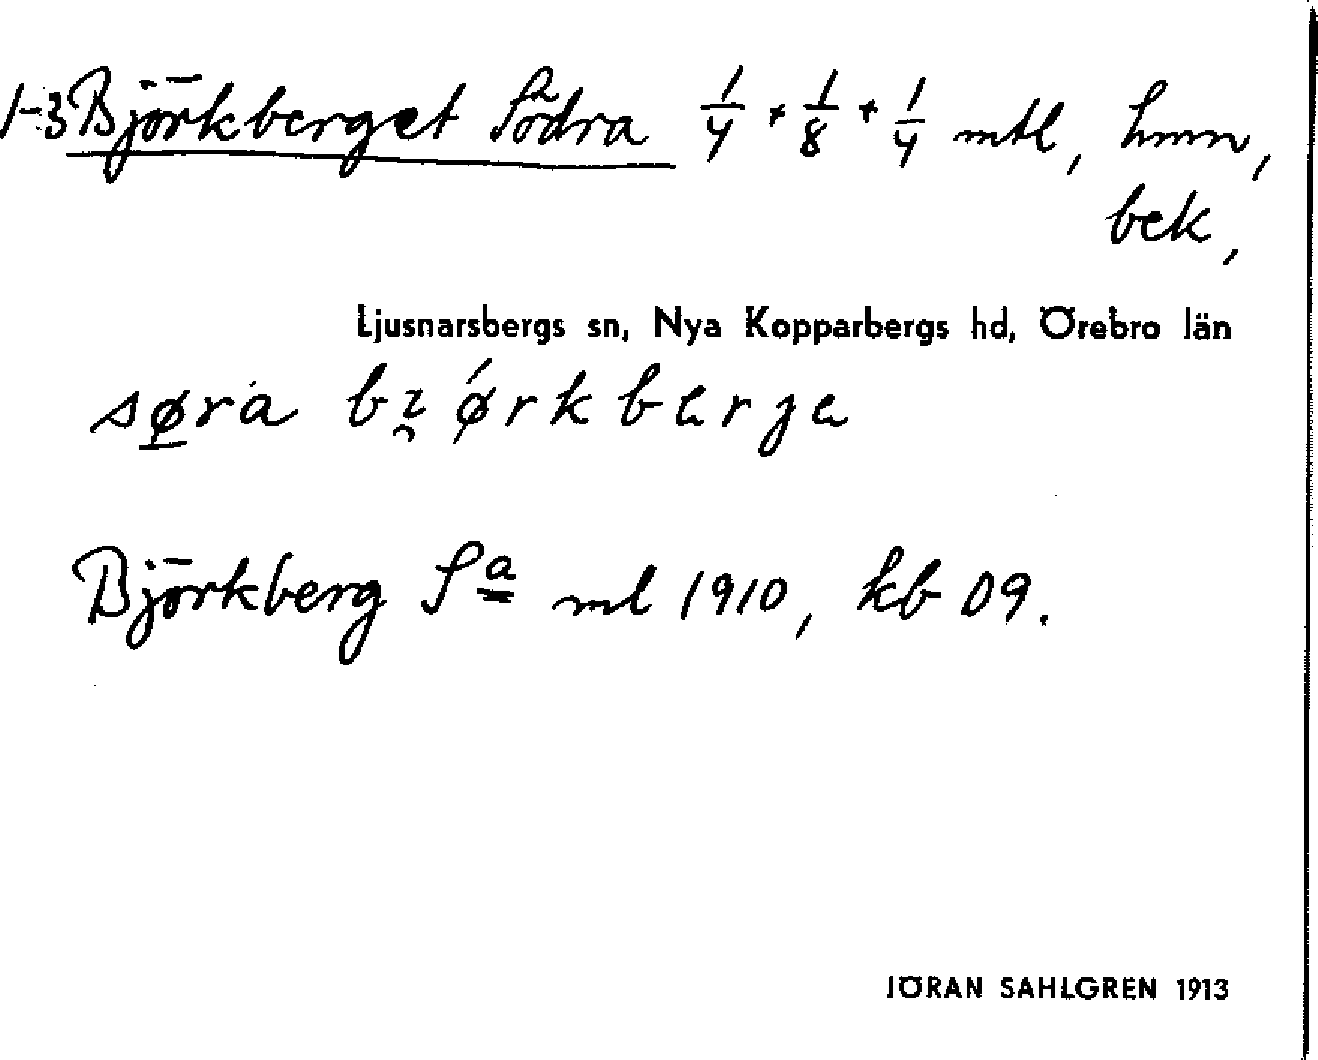 1-3 Björkberget Södra 1/4 + 1/8 + 1/4 mtl, hmn,
bek,
Ljusnarsbergs sn, Nya Kopparbergs hd, Örebro län
søra bı̯ørkbærjе
Björkberg Sa ml 1910, kb 09.
JÖRAN SAHLGREN 1913